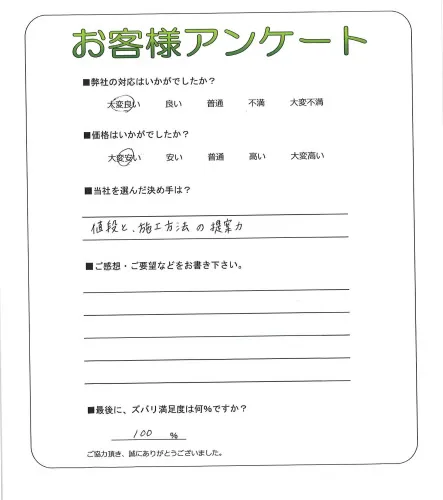 お客様アンケート
■弊社の対応はいかがでしたか？
大変良い 良い 普通 不満 大変不満
■価格はいかがでしたか？
大変安い 安い 普通 高い 大変高い
■当社を選んだ決め手は？
値段と、施工方法の提案力
■ご感想・ご要望などをお書き下さい。
■最後に、ズバリ満足度は何%ですか？
100 %
ご協力頂き、誠にありがとうございました。